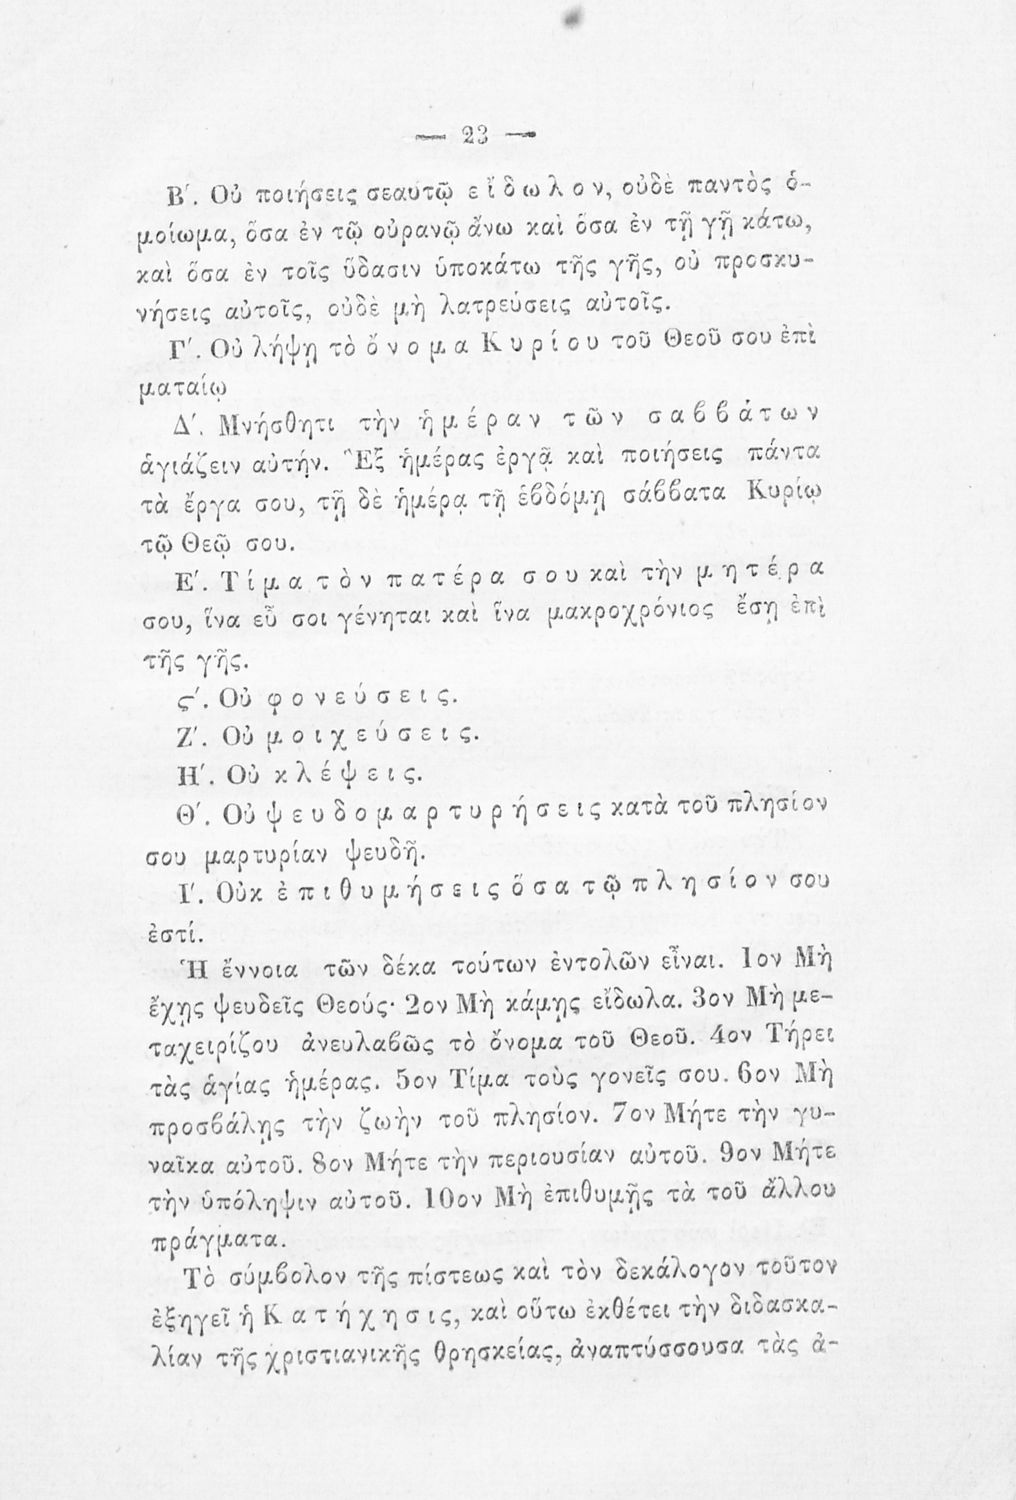 — 23 —
Β΄. Οὐ ποιήσεις σεαυτῷ εἴδωλον, οὐδὲ παντὸς ὁ-
μοίωμα, ὅσα ἐν τῷ οὐρανῷ ἄνω καὶ ὅσα ἐν τῇ γῇ κάτω,
καὶ ὅσα ἐν τοῖς ὕδασιν ὑποκάτω τῆς γῆς, οὐ προσκυ-
νήσεις αὐτοῖς, οὐδὲ μὴ λατρεύσεις αὐτοῖς.
Γ΄. Οὐ λήψῃ τὸ ὄνομα Κυρίου τοῦ Θεοῦ σου ἐπὶ
ματαίῳ
Δ΄. Μνήσθητι τὴν ἡμέραν τῶν σαββάτων
ἁγιάζειν αὐτήν. Ἓξ ἡμέρας ἐργᾷ καὶ ποιήσεις πάντα
τὰ ἔργα σου, τῇ δὲ ἡμέρᾳ τῇ ἑβδόμῃ σάββατα Κυρίῳ
τῷ Θεῷ σου.
Ε΄. Τίμα τὸν πατέρα σου καὶ τὴν μητέρα
σου, ἵνα εὖ σοι γένηται καὶ ἵνα μακροχρόνιος ἔσῃ ἐπὶ
τῆς γῆς.
ς΄. Οὐ φονεύσεις.
Ζ΄. Οὐ μοιχεύσεις.
Η΄. Οὐ κλέψεις.
Θ΄. Οὐ ψευδομαρτυρήσεις κατὰ τοῦ πλησίον
σου μαρτυρίαν ψευδῆ.
Ι΄. Οὐκ ἐπιθυμήσεις ὅσα τῷ πλησίον σου
ἐστί.
Ἡ ἔννοια τῶν δέκα τούτων ἐντολῶν εἶναι. 1ον Μὴ
ἔχῃς ψευδεῖς Θεούς· 2ον Μὴ κάμῃς εἴδωλα. 3ον Μὴ με-
ταχειρίζου ἀνευλαβῶς τὸ ὄνομα τοῦ Θεοῦ. 4ον Τήρει
τὰς ἁγίας ἡμέρας. 5ον Τίμα τοὺς γονεῖς σου. 6ον Μὴ
προσβάλῃς τὴν ζωὴν τοῦ πλησίον. 7ον Μήτε τὴν γυ-
ναῖκα αὐτοῦ. 8ον Μήτε τὴν περιουσίαν αὐτοῦ. 9ον Μήτε
τὴν ὑπόληψιν αὐτοῦ. 10ον Μὴ ἐπιθυμῇς τὰ τοῦ ἄλλου
πράγματα.
Τὸ σύμβολον τῆς πίστεως καὶ τὸν δεκάλογον τοῦτον
ἐξηγεῖ ἡ Κατήχησις, καὶ οὕτω ἐκθέτει τὴν διδασκα-
λίαν τῆς χριστιανικῆς θρησκείας, ἀναπτύσσουσα τὰς ἀ-